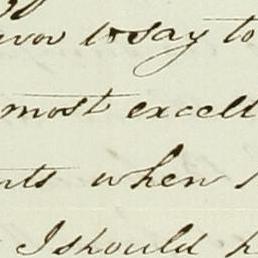 to say to
most excell
nts when I
I should h